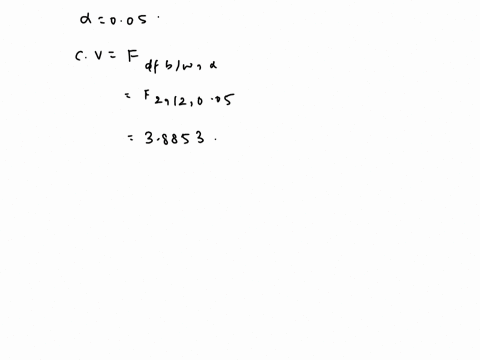 α = 0.05 .
C. V = F df b/w, α
= F 2, 12, 0.05
= 3.8853 .